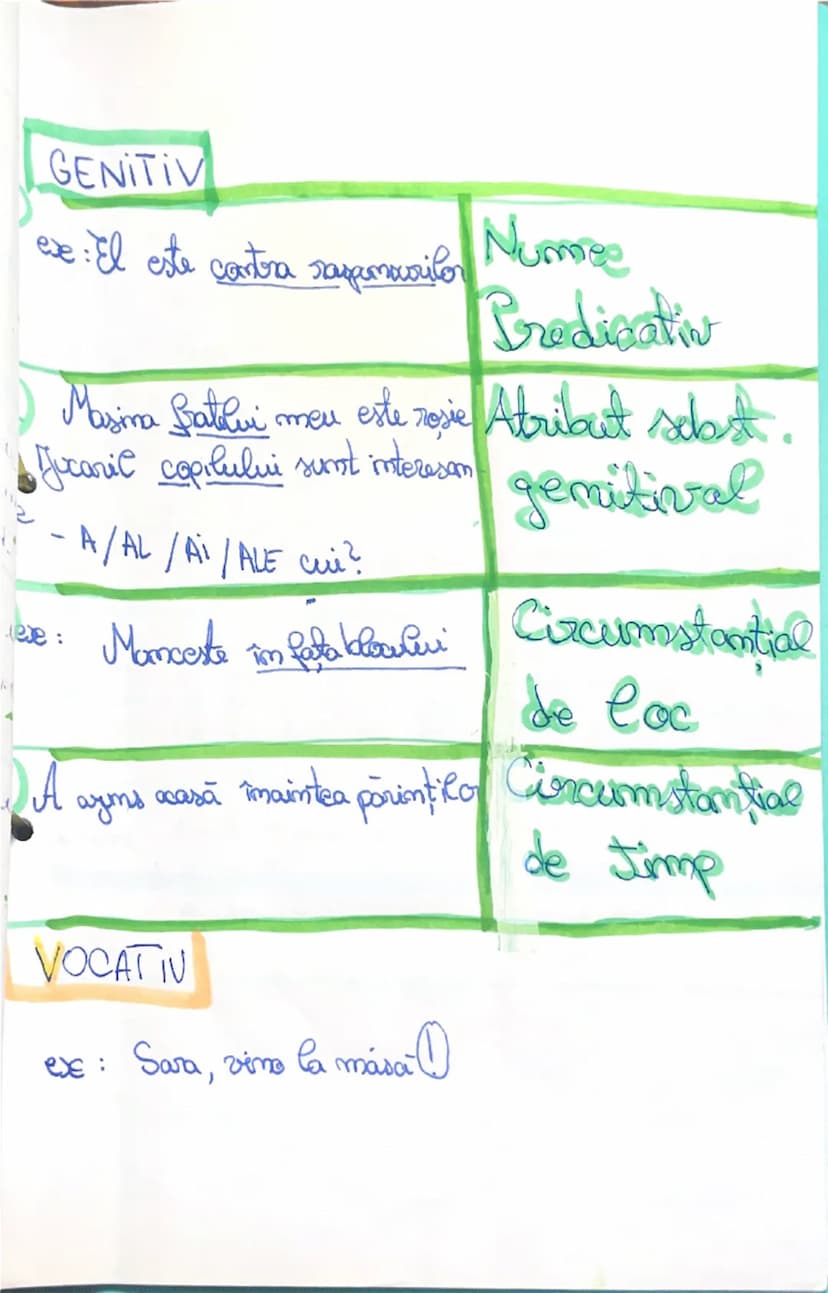 GENITIV
ex: El este contra razamurilor
Nume
Predicativ
Mașina fratelui meu este roșie
Jucarile copilului sunt interesan
- A/AL/Ai/ALE cui?
Atribut subst.
genitival
exe: în fața blocului
Circumstanțial
de loc
A ajuns acasă înaintea părinților
Circumstanțial
de timp
VOCATIV
ex: Sara, vino la măsă!